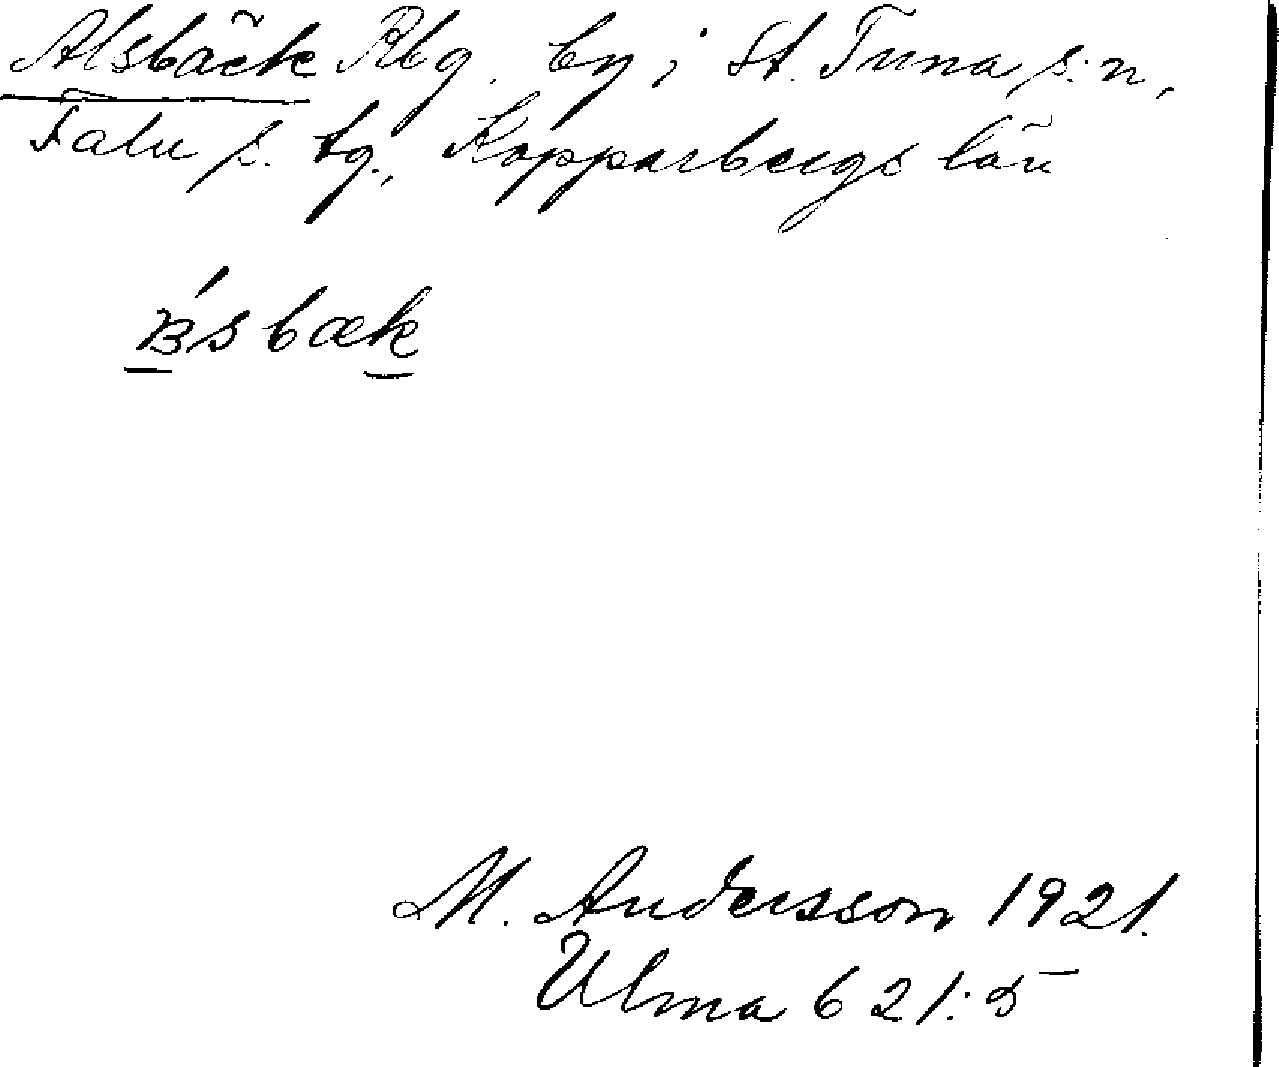 Alsbäck Rbg. by i St. Tuna s:n,
Falu s. tg., Kopparbergs län
bæk
M. Andersson 1921.
Ulma 621:5